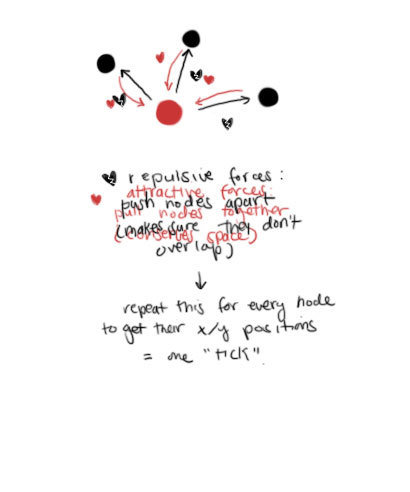 repulsive forces:
attractive forces:
push nodes apart
pull nodes together
(makes sure they don't
(conserves space)
overlap)
repeat this for every node
to get their x/y positions
= one "tick".